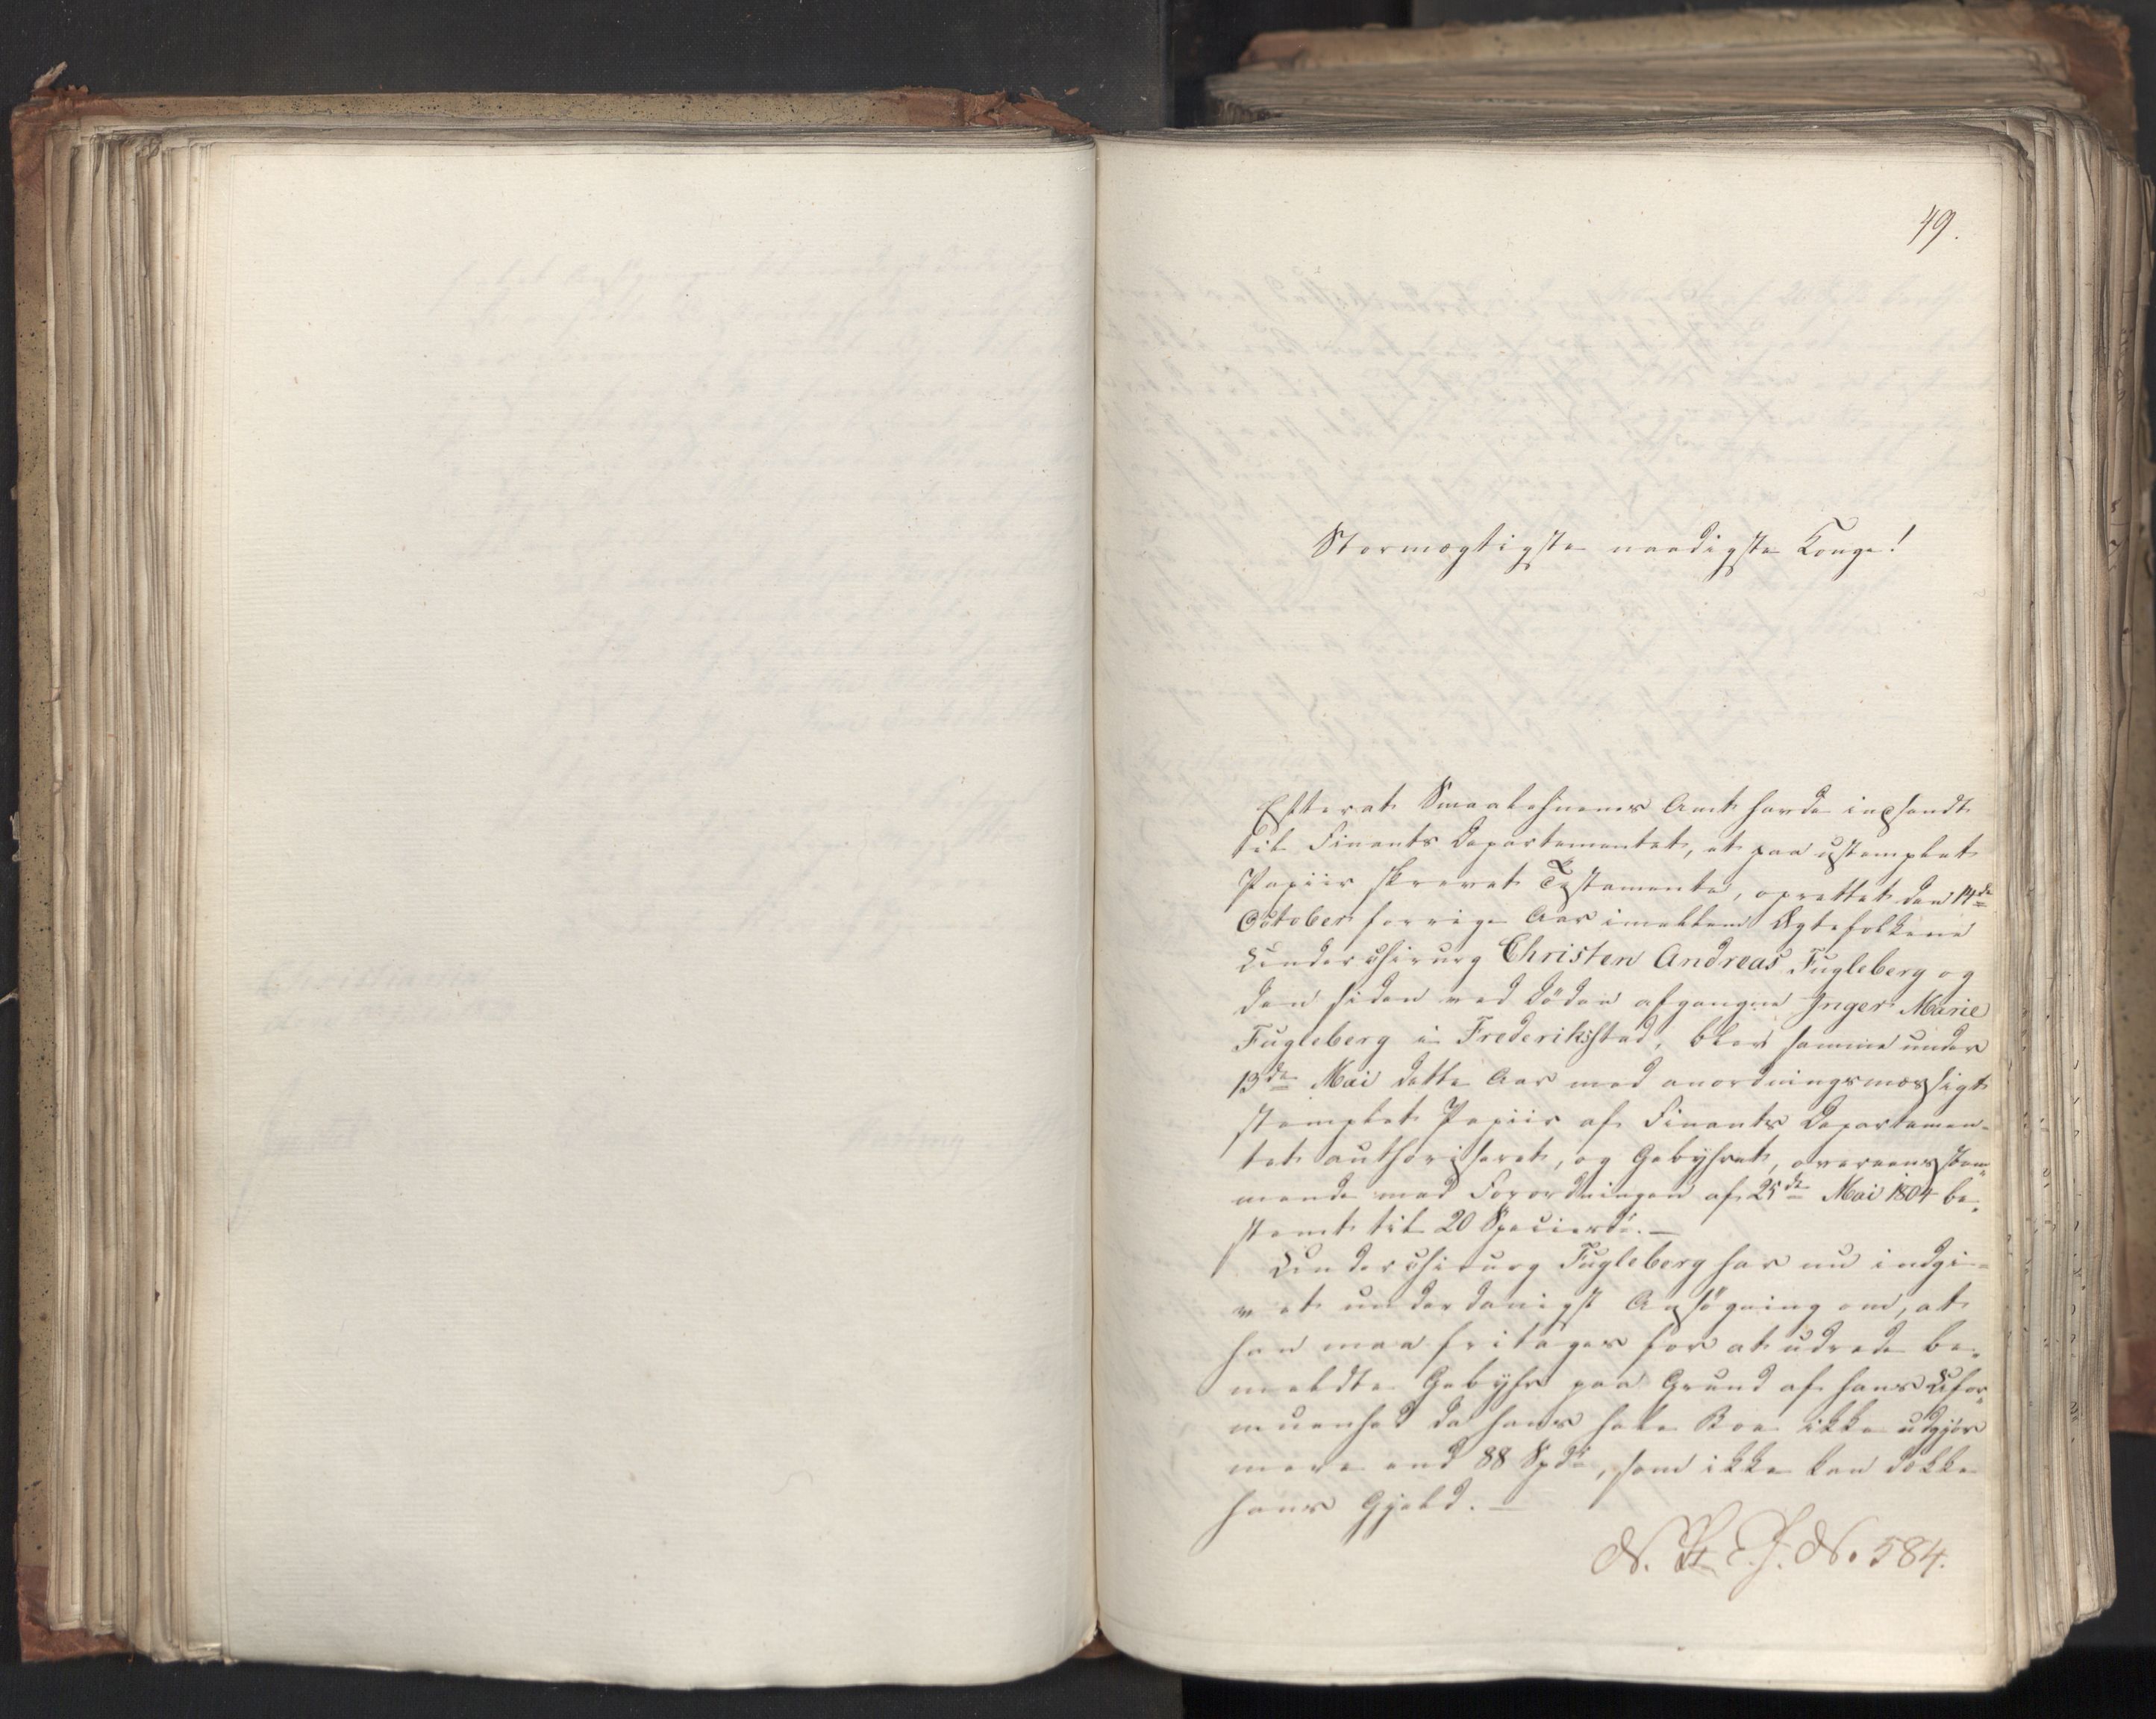 49.
Stormægtigste naadigste Konge!
Efterat Smaalehnenes Amt havde indsendt
til Finants Departementet, et paa ustemplet
Papiir skrevet Testamente, oprettet den 14de
October forrige Aar imellem Ægtefolkene
Underchirurg Christen Andreas Fugleberg og
den siden ved Døden afgangne Inger Marie
Fugleberg i Frederikstad, blev samme under
13de Mai dette Aar med anordningsmæssigt
stemplet Papiir af Finants Departemen-
tet authoriseret, og Gebyhret, overeensstem-
mende med Forordningen af 25de Mai 1804 be-
stemt til 20 Speciesdr.—
Underchirurg Fugleberg har nu indgi-
vet underdanigst Ansøgning om, at
han maa fritages for at udrede be-
meldte Gebyhr paa Grund af hans Ufor-
muenhed da hans hele Boe ikke udgjør
mere end 88 Spdr, som ikke kan dække
hans Gjæld.—
N. 584.